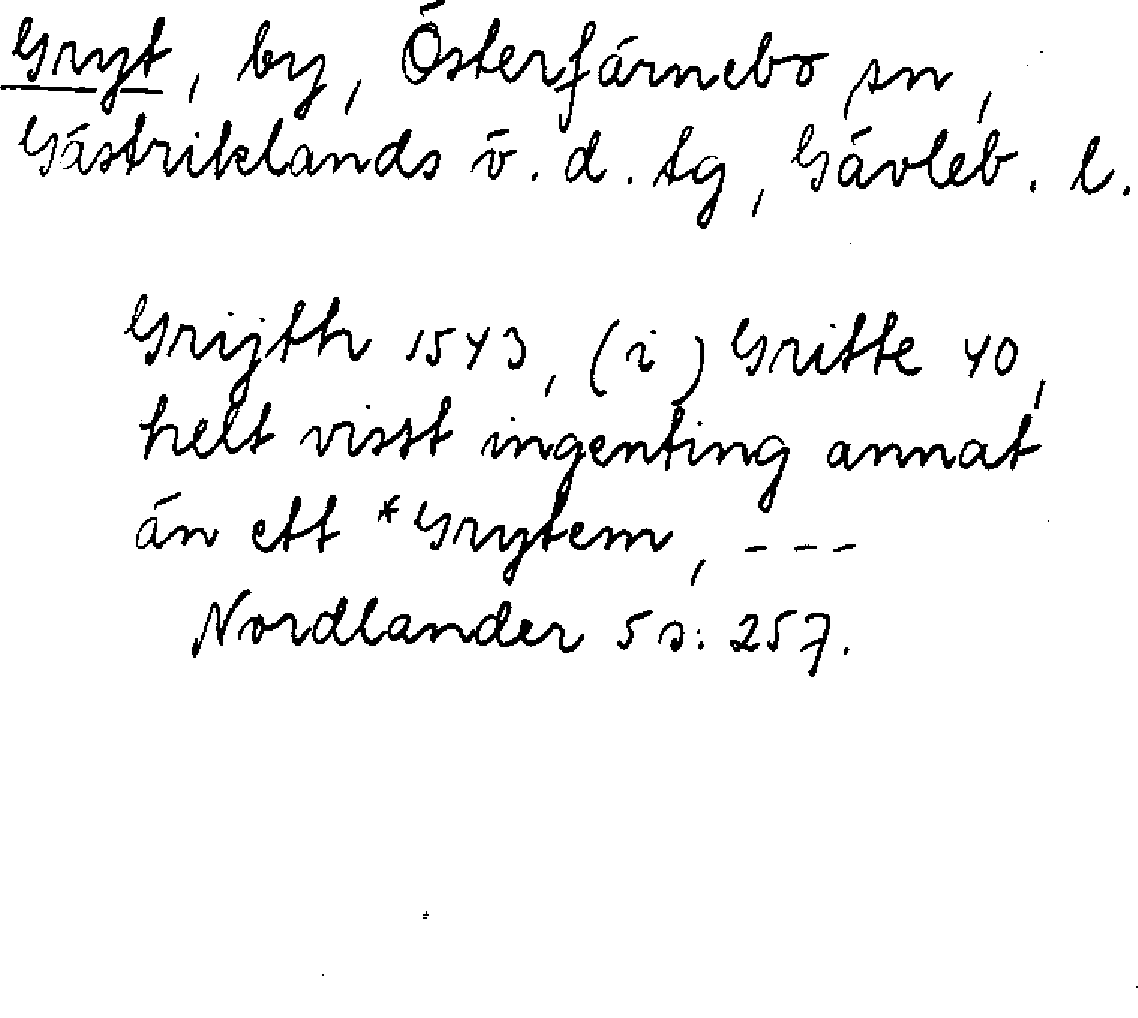 Gryt, by, Österfärnebo sn,
Gästriklands ö. d. tg, Gävleb. l.
Grijth 1543, (i) Gritte 40,
helt visst ingenting annat
än ett *Grytem, - - -
Nordlander 5 s: 257.